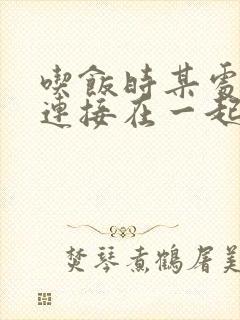 喫飯時某處
連接在一起
焚琴煮鶴屠美